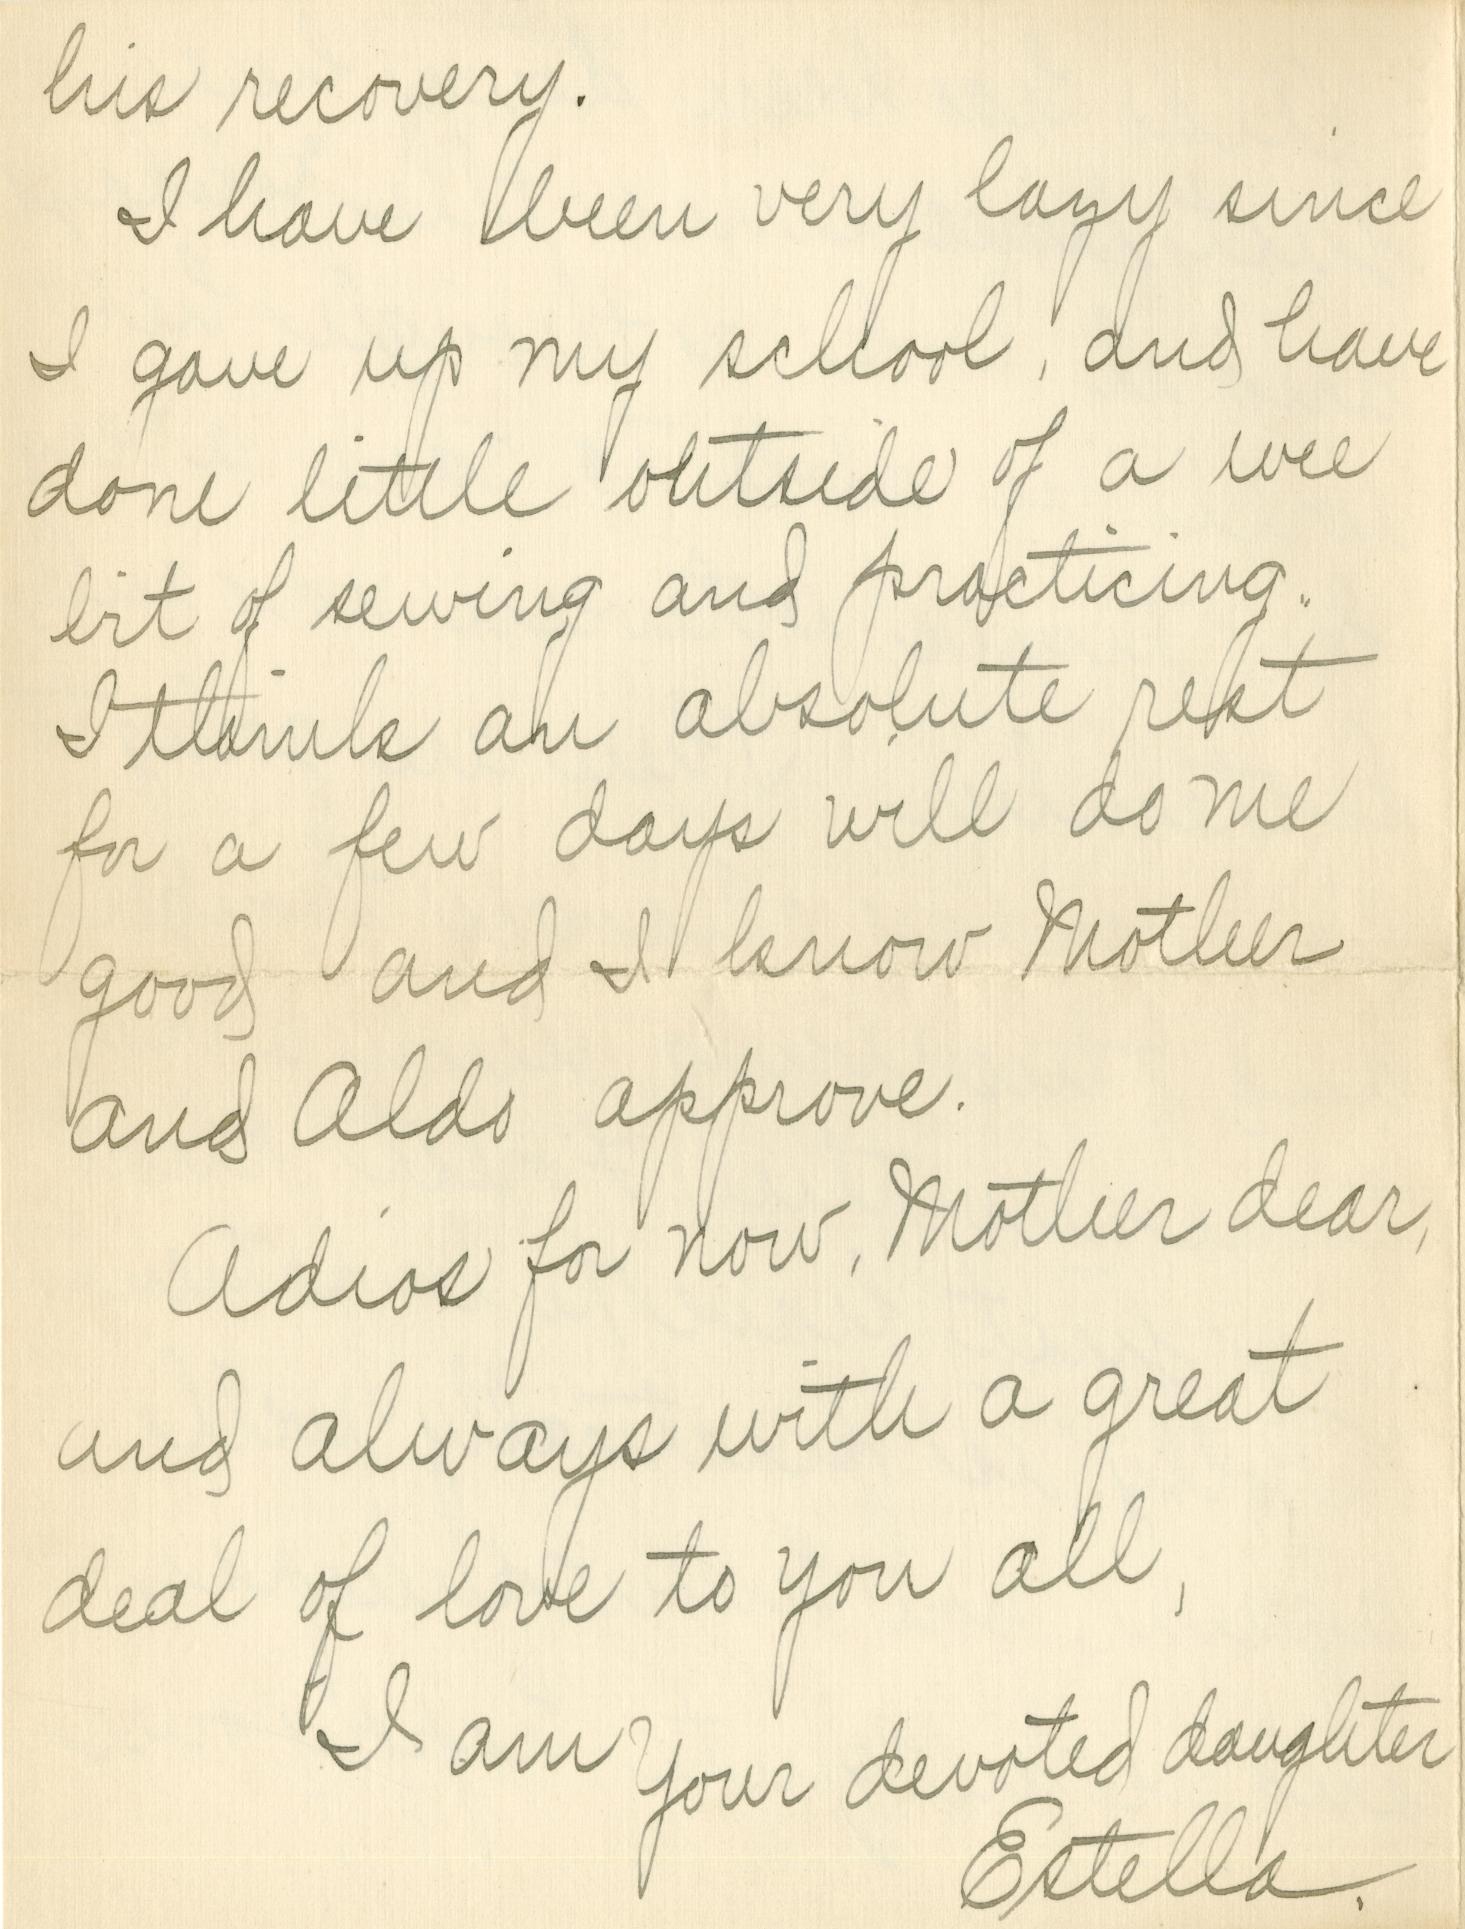 his recovery.
I have been very lazy since
I gave up my school, and have
done little outside of a wee
bit of sewing and practicing.
I think an absolute rest
for a few days will do me
good and I know Mother
and Aldo approve.
Adios for now, Mother dear,
and always with a great
deal of love to you all,
I am Your devoted daughter
Estella.